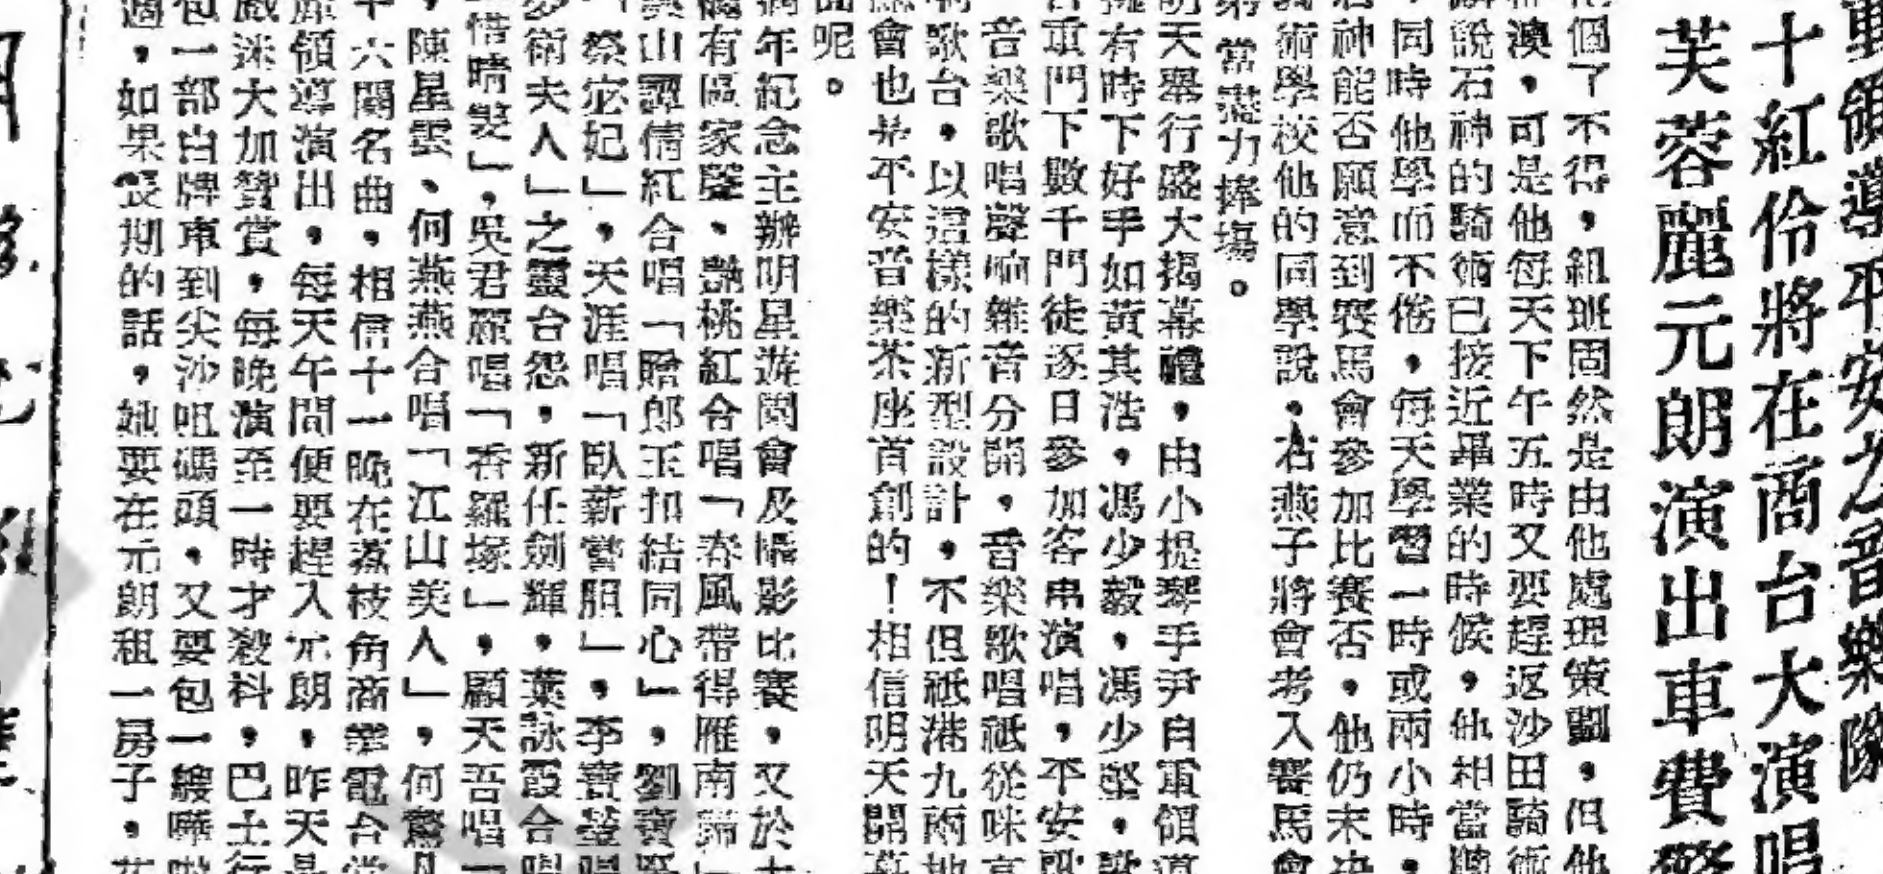 動領導平安之音樂隊
十紅伶將在商台大演唱
芙蓉麗元朗演出車費驚
個了不得，組班固然是由他處理策劃，但他
澳，可是他每天下午五時又要趕返沙田騎術
說石神的騎術已接近畢業的時候，他相當聰
同時他學而不倦，每天學習一時或兩小時，
神能否願意到賽馬會參加比賽否，他仍未決
術學校他的同學說，石燕子將會考入賽馬會
當盡力捧場。
明天舉行盛大揭幕禮，由小提琴手尹自重領導
有時下好手如黃其浩，馮少毅，馮少堅，歌
重門下數千門徒逐日參加客串演唱，平安歌
音樂歌唱聲响雜音分開，音樂歌唱祇從咪高
歌台，以這樣的新型設計，不但祇港九兩地
會也是平安音樂茶座首創的！相信明天開幕
呢。
年紀念主辦明星遊園會及攝影比賽，又於
有區家聲、艷桃紅合唱「春風帶得雁南歸」
山譚倩紅合唱「贈郎玉扣結同心」，劉寶
「祭宓妃」，天涯唱「臥薪嘗胆」，李寶瑩唱
夫人」之靈台怨，新任劍輝，葉詠霞合唱
惜晴雯」，吳君麗唱「香羅塚」，顧天吾唱「
，陳星雲、何燕燕合唱「江山美人」，何驚凡
十六闋名曲，相信十一晚在荔枝角商業電台當
領導演出，每天午間便要趕入元朗，昨天是
戲迷大加贊賞，每晚演至一時才殺科，巴士行
包一部白牌車到尖沙咀碼頭，又要包一艘嘩啦
過，如果長期的話，她要在元朗租一房子，花